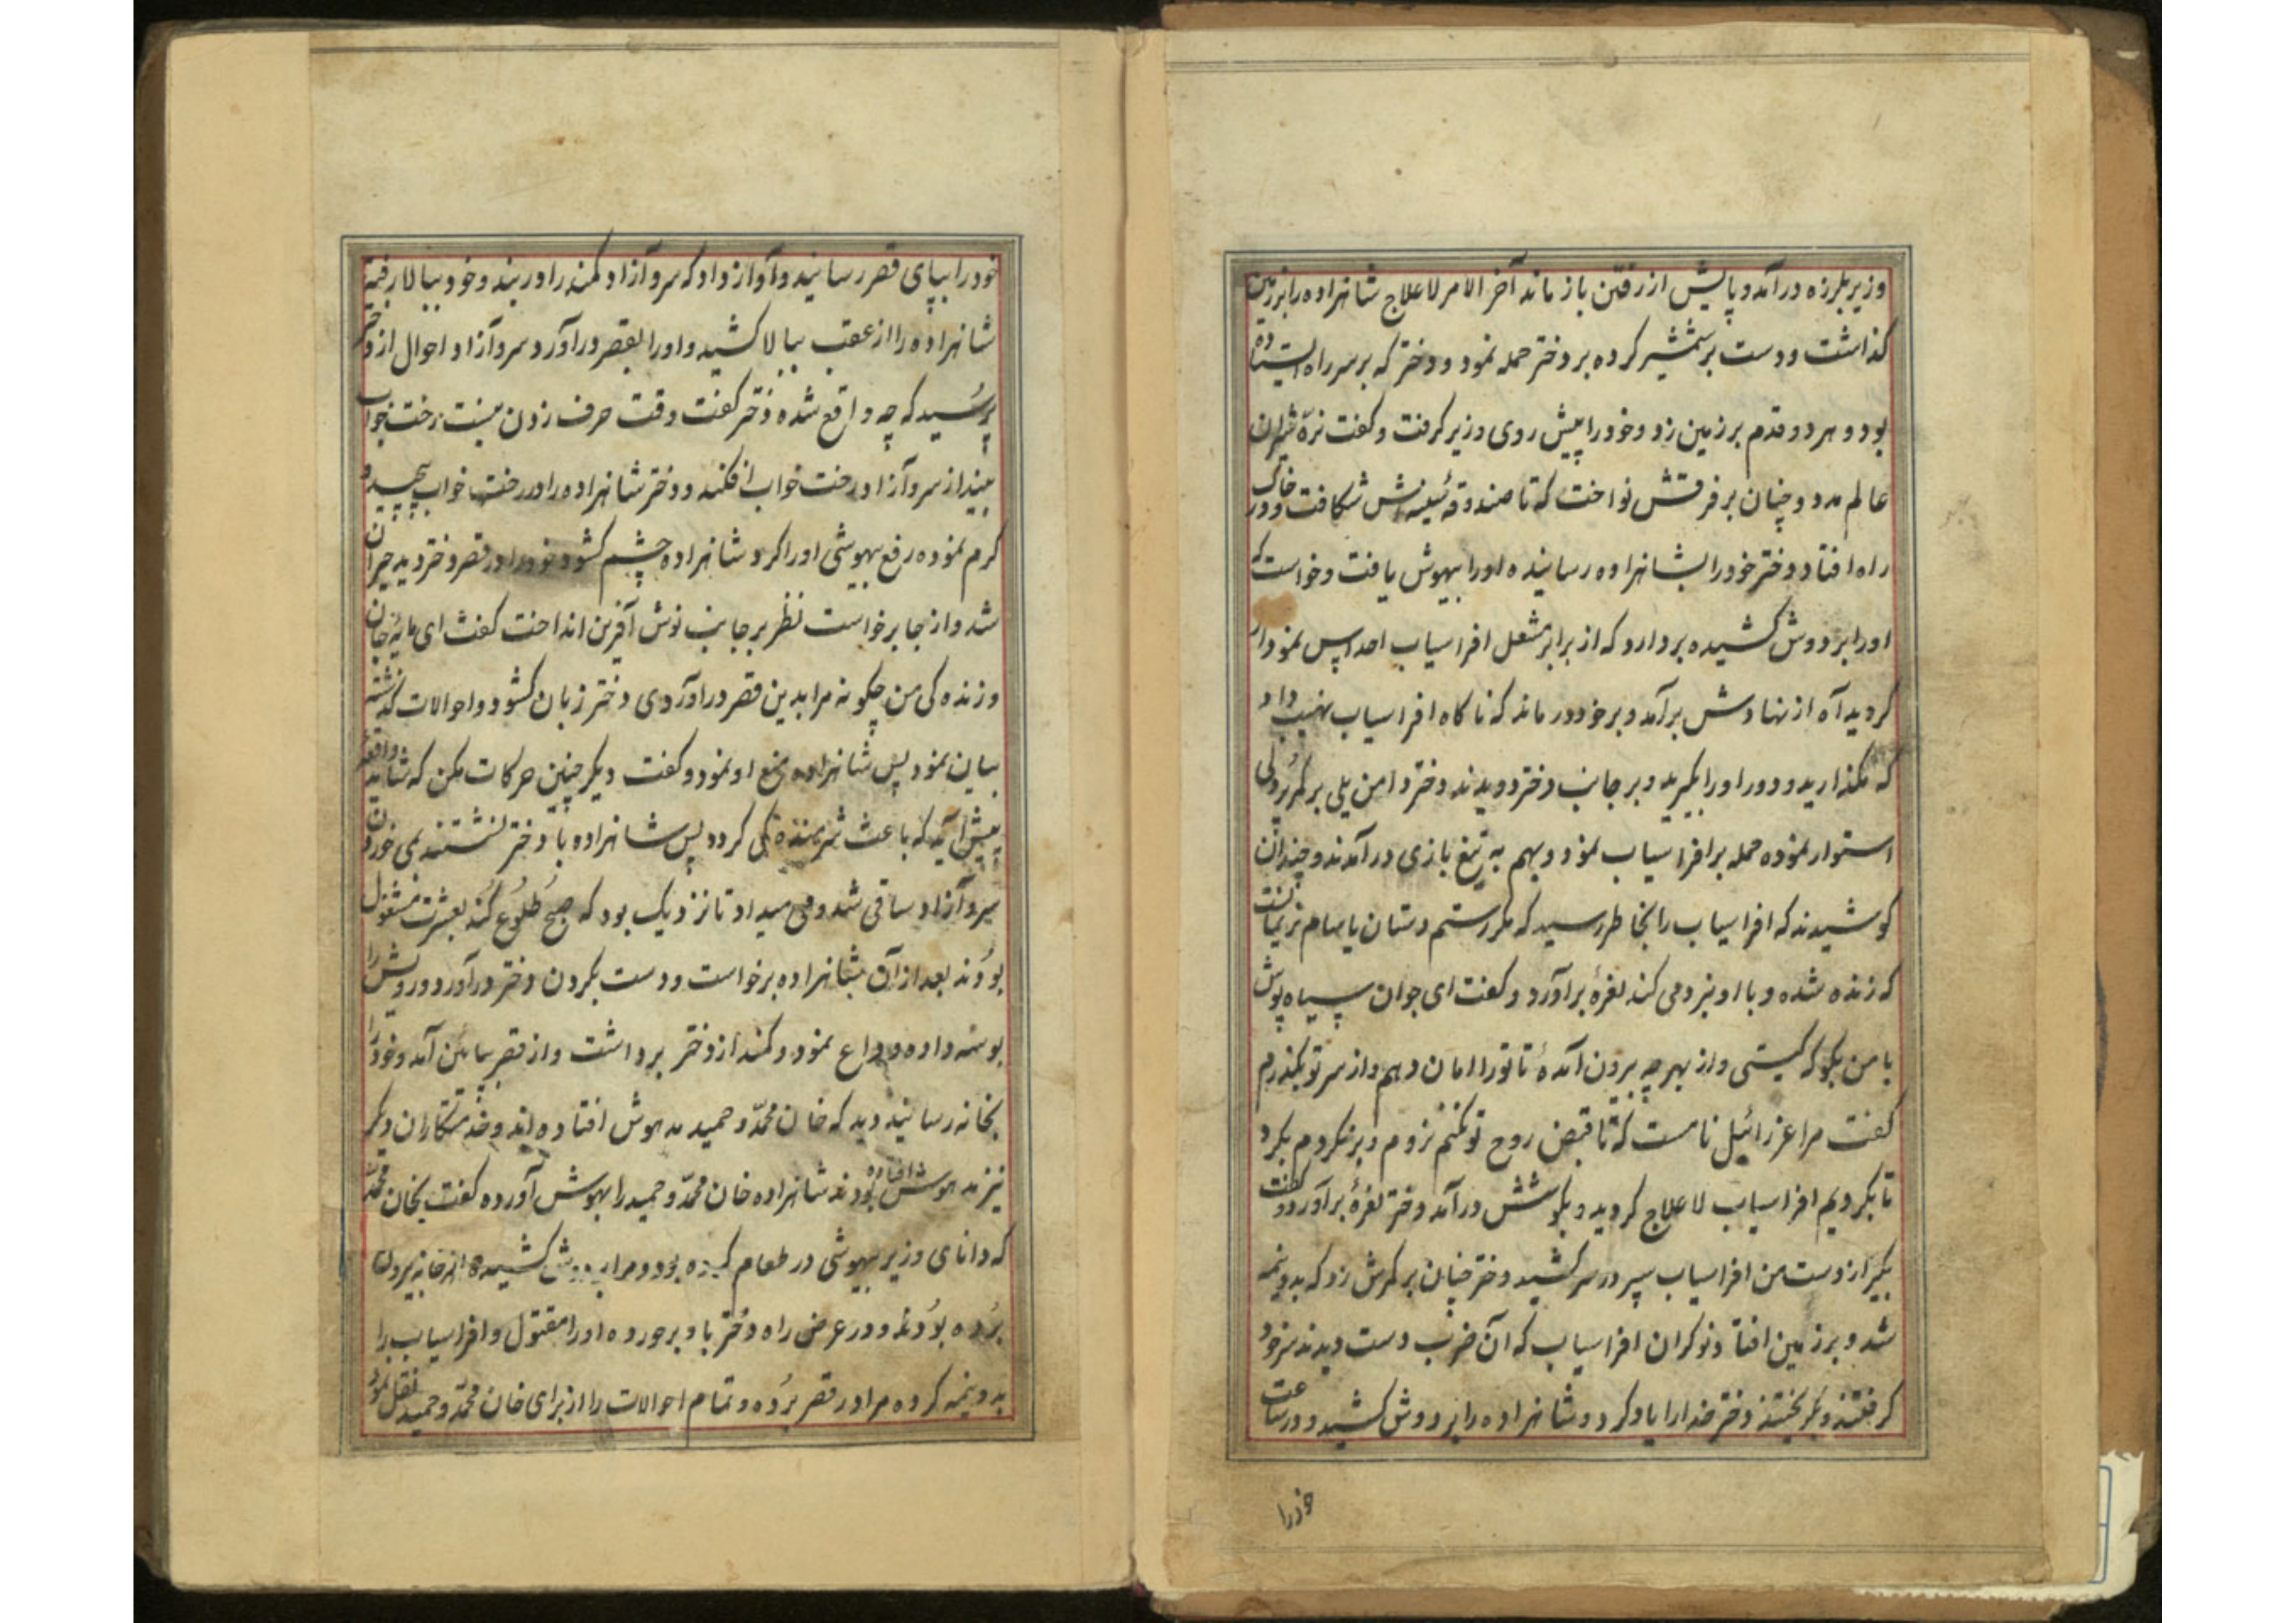 وزیر بلرزه درآمد و پایش از رفتن باز ماند آخر الامر لاعلاج شاهزاده را بر زمین
گذاشت و دست بر شمشیر کرده بر دختر حمله نمود و دختر که بر سر راه ایستاده
بود و هر دو قدم بر زمین زد و خود را پیش روی وزیر گرفت و گفت نرّه شیران
عالم مدد و چنان بر فرقش نواخت که تا صندوقهٔ سینه‌اش شکافت و در خاک
راه افتاد و دختر خود را بشاهزاده رسانیده او را بیهوش یافت و خواست که
او را بر دوش کشیده بردارد که از برابر مشعل افراسیاب احداپس نمودار
گردید آه از نهادش برآمد و بر خود درماند که ناکاه افراسیاب نهیب داد
که مگذارید و دور او را بگیرید و بر جانب دختر دویدند دختر دامن یلی بر کمر پُردلی
استوار نموده حمله بر افراسیاب نمود و بهم به تیغ بازی درآمدند و چندان
کوشیدند که افراسیاب را بخاطر رسید که مگر رستم دستان یا سام نریمانست
که زنده شده و با او نبرد می کند نعرهٔ برآورد و گفت ای جوان سیاه پوش
با من بگو که کیستی و از بهر چه بیرون آمدهٔ تا تو را امان دهم و از سر تو بگذرم
گفت مرا عزرائیل نامست که تا قبض روح تو نکنم نروم و برنگردم بگرد
تا بگردیم افراسیاب لاعلاج گردید و بکوشش درآمد دختر نعرهٔ برآورد و گفت
بگیر از دست من افراسیاب سپر در سر کشید دختر چنان بر کمرش زد که بدو نیمه
شد و بر زمین افتاد نوکران افراسیاب که آن ضرب دست دیدند سر خود
گرفتند و بگریختند دختر خدا را یاد کرد و شاهزاده را بر دوش کشید و در ساعت
خود را
خود را بپای قصر رسانید و آواز داد که سرو آزاد کمند را در بند و خود ببالا رفته
شاهزاده را از عقب ببالا کشید و او را بقصر درآورد سرو آزاد احوال از دختر
پرسید که چه واقع شده دختر گفت وقت حرف زدن نیست رخت خواب
بینداز سرو آزاد رخت خواب افکند و دختر شاهزاده را در رخت خواب پیچیده
گرم نموده رفع بیهوشی او را کرد شاهزاده چشم گشود خود را در قصر دختر دید حیران
شد و از جا برخواست نظر بر جانب نوش آفرین انداخت گفت ای مایهٔ جان
و زنده‌کی من چگونه مرا بدین قصر درآوردی دختر زبان گشود و احوالات گذشته
بیان نمود پس شاهزاده منع او نمود و گفت دیگر چنین حرکات مکن که شاید واقعه
پیش آید که باعث شرمنده‌گی گردد پس شاهزاده با دختر نشستند می خوردن
سرو آزاد ساقی شد و می میداد تا نزدیک بود که صبح طلوع کند بعشرت مشغول
بودند بعد از آن شاهزاده برخواست و دست بگردن دختر درآورد و رویش را
بوسه داده وداع نمود و کمند از دختر برداشت و از قصر بپائین آمد و خود را
بخانه رسانید دید که خان محمّد و حمید مدهوش افتاده‌اند و خدمتکاران دیگر
نیز مدهوش افتاده بودند شاهزاده خان محمّد و حمید را بهوش آورده گفت بخان محمّد
که دانای وزیر بیهوشی در طعام کرده بود و مرا بدوش کشیده از خانه بیرون
برده بودند و در عرض راه دختر باو برخورده او را مقتول و افراسیاب را
بدو نیمه کرده مرا در قصر برده و تمام احوالات را از برای خان محمّد و حمید نقل نمود